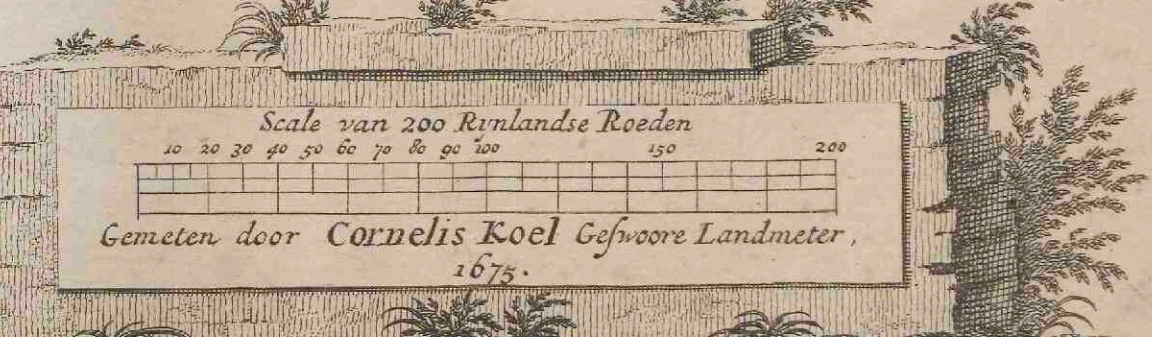 Scale van 200 Rynlandse Roeden
10 20 30 40 50 60 70 80 90 100 150 200
Gemeten door Cornelis Koel Geſwoore Landmeter,
1675.